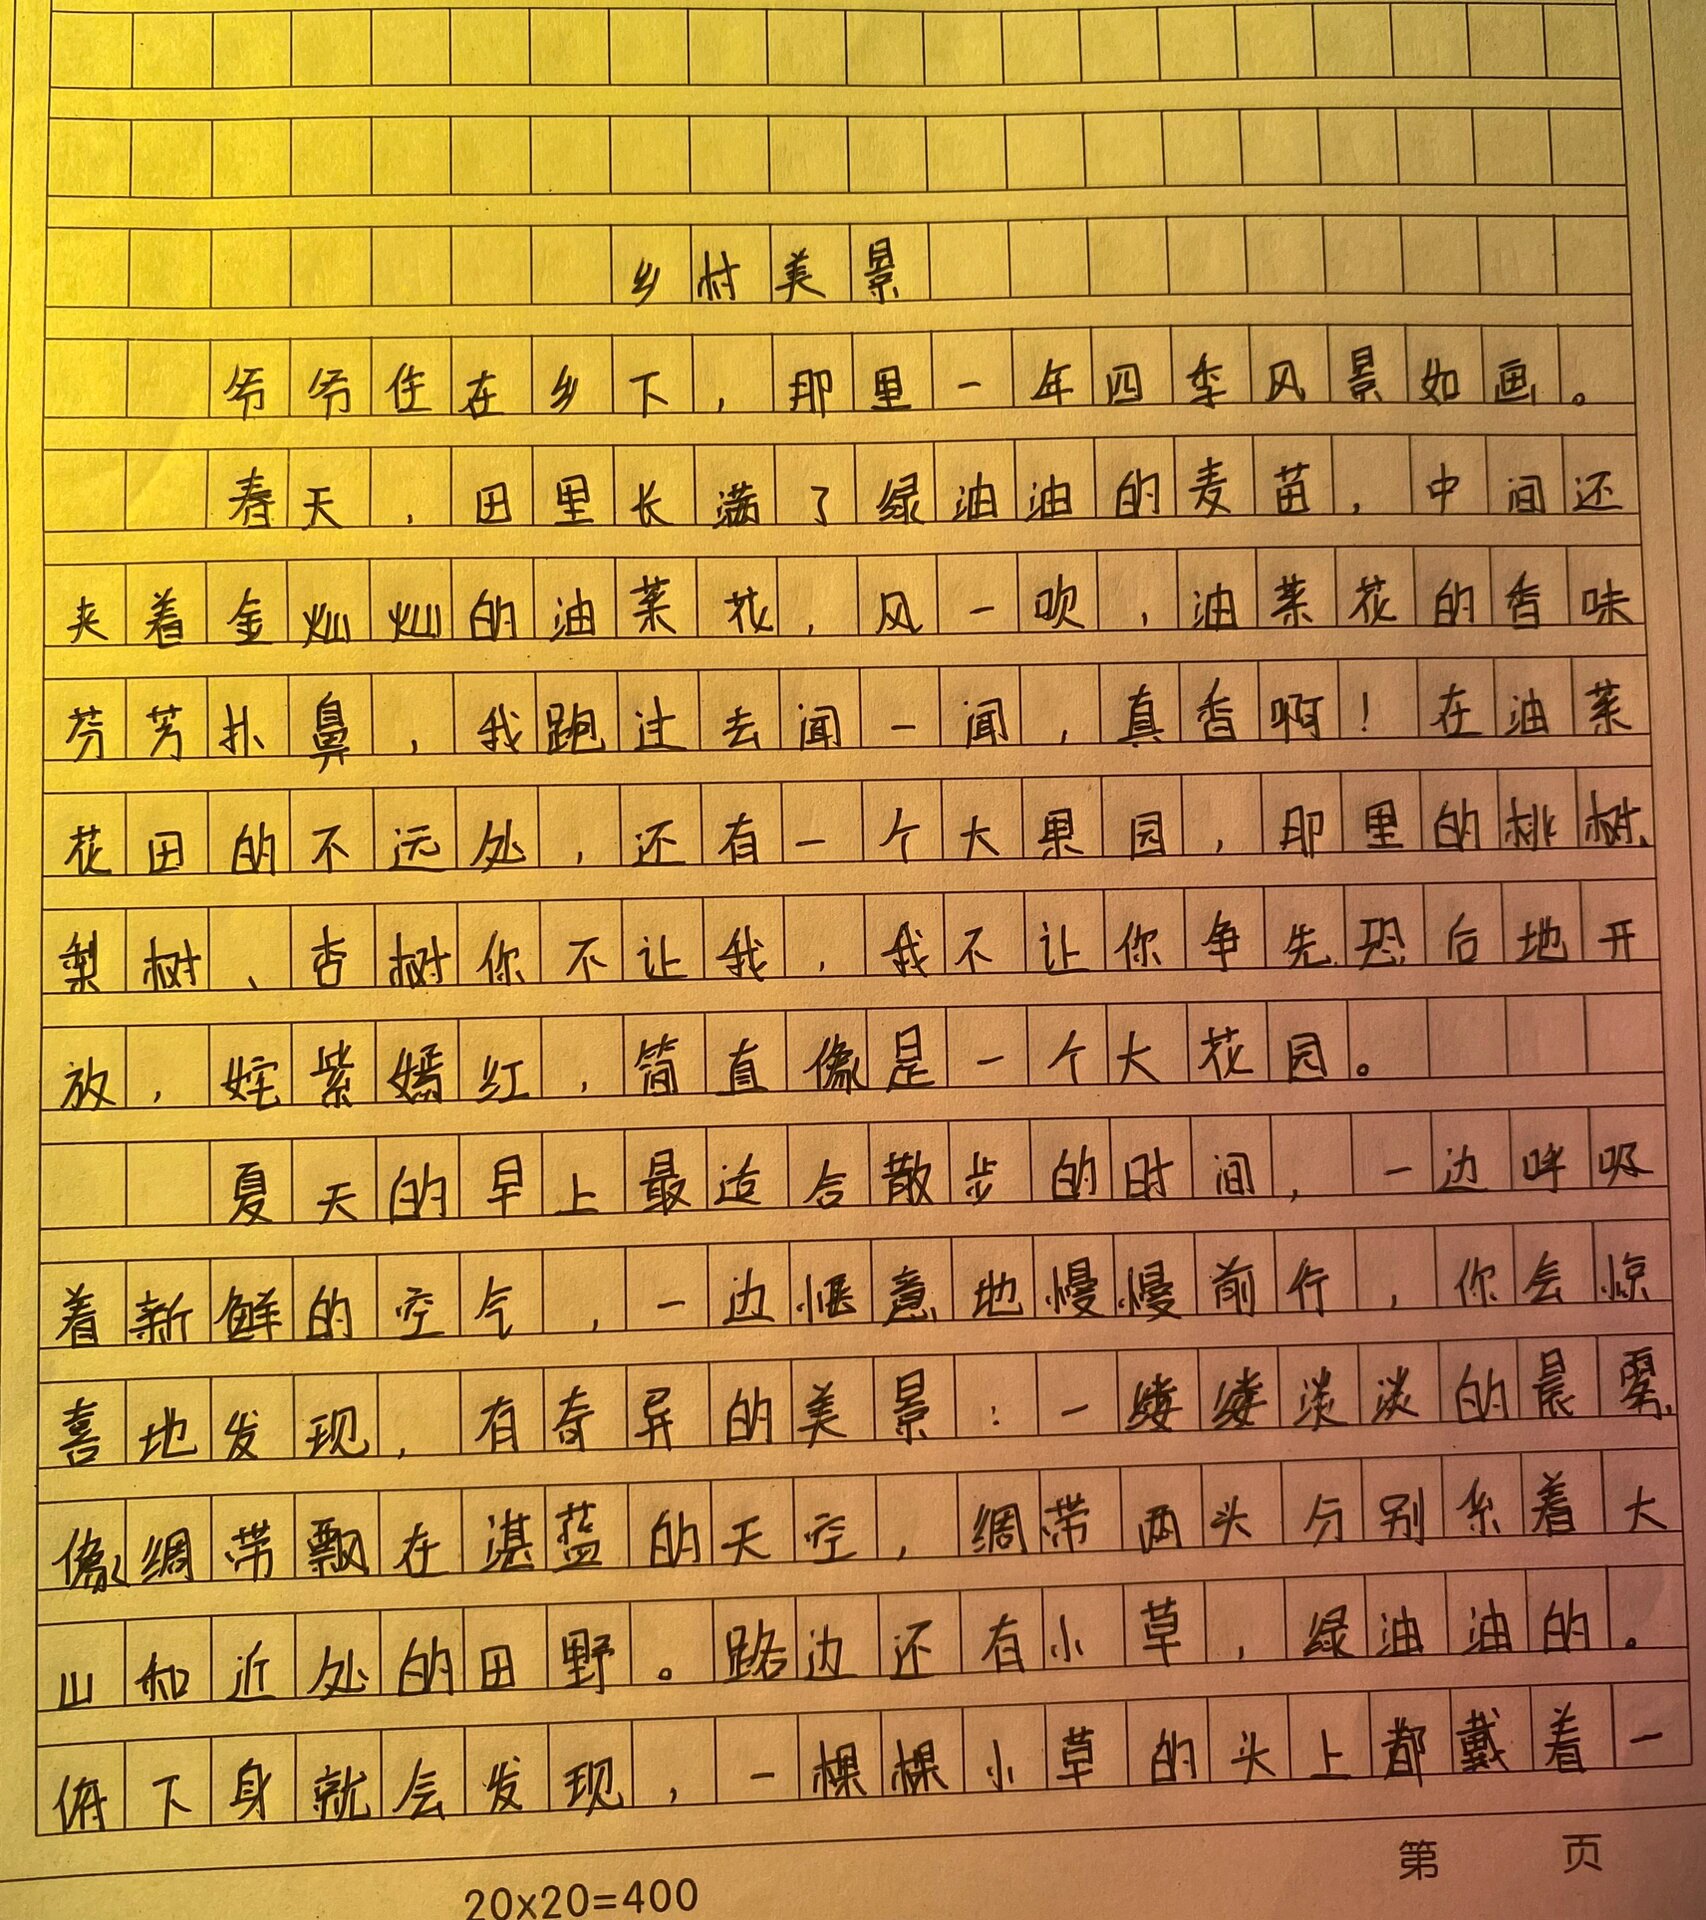 乡村美景
爷爷住在乡下，那里一年四季风景如画。
春天，田里长满了绿油油的麦苗，中间还
夹着金灿灿的油菜花，风一吹，油菜花的香味
芬芳扑鼻，我跑过去闻一闻，真香啊！在油菜
花田的不远处，还有一个大果园，那里的桃树、
梨树、杏树你不让我，我不让你争先恐后地开
放，姹紫嫣红，简直像是一个大花园。
夏天的早上最适合散步的时间，一边呼吸
着新鲜的空气，一边惬意地慢慢前行，你会惊
喜地发现，有奇异的美景：一缕缕淡淡的晨雾，
像绸带飘在湛蓝的天空，绸带两头分别系着大
山和近处的田野。路边还有小草，绿油油的。
俯下身就会发现，一棵棵小草的头上都戴着一
第 页
20x20=400